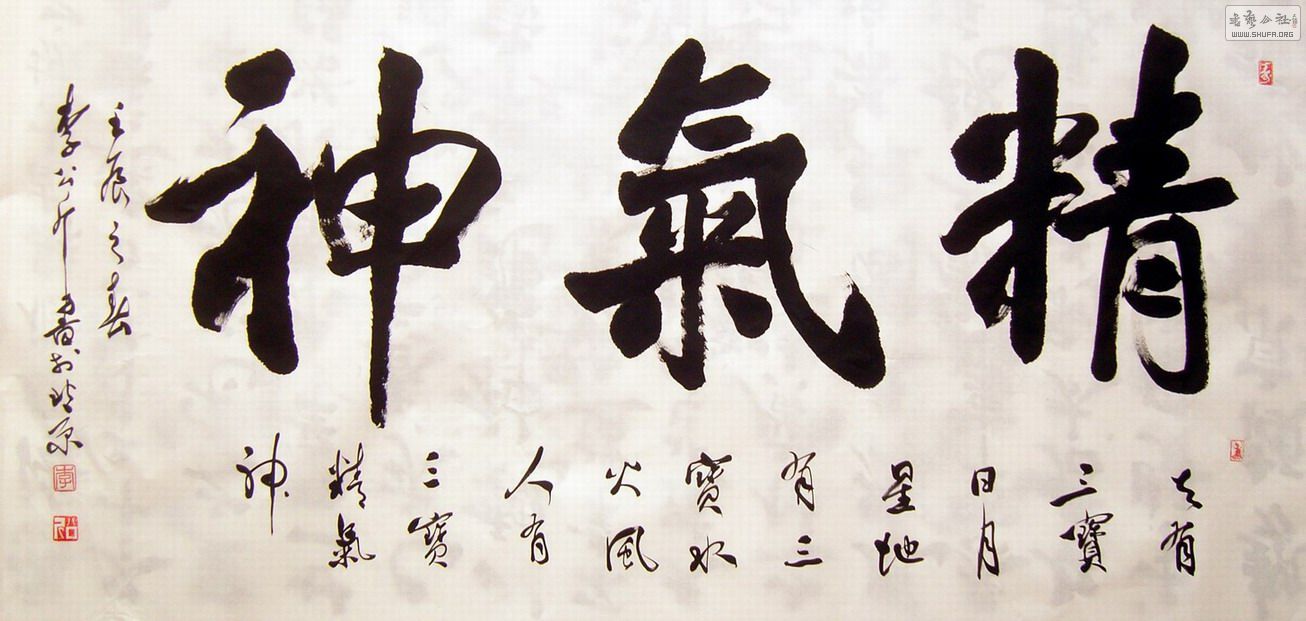 精氣神
天有
三寶
日月
星地
有三
寶水
火風
人有
三寶
精氣
神
壬辰之春
李公尒書於北京
書藝公社
WWW.SHUFA.ORG